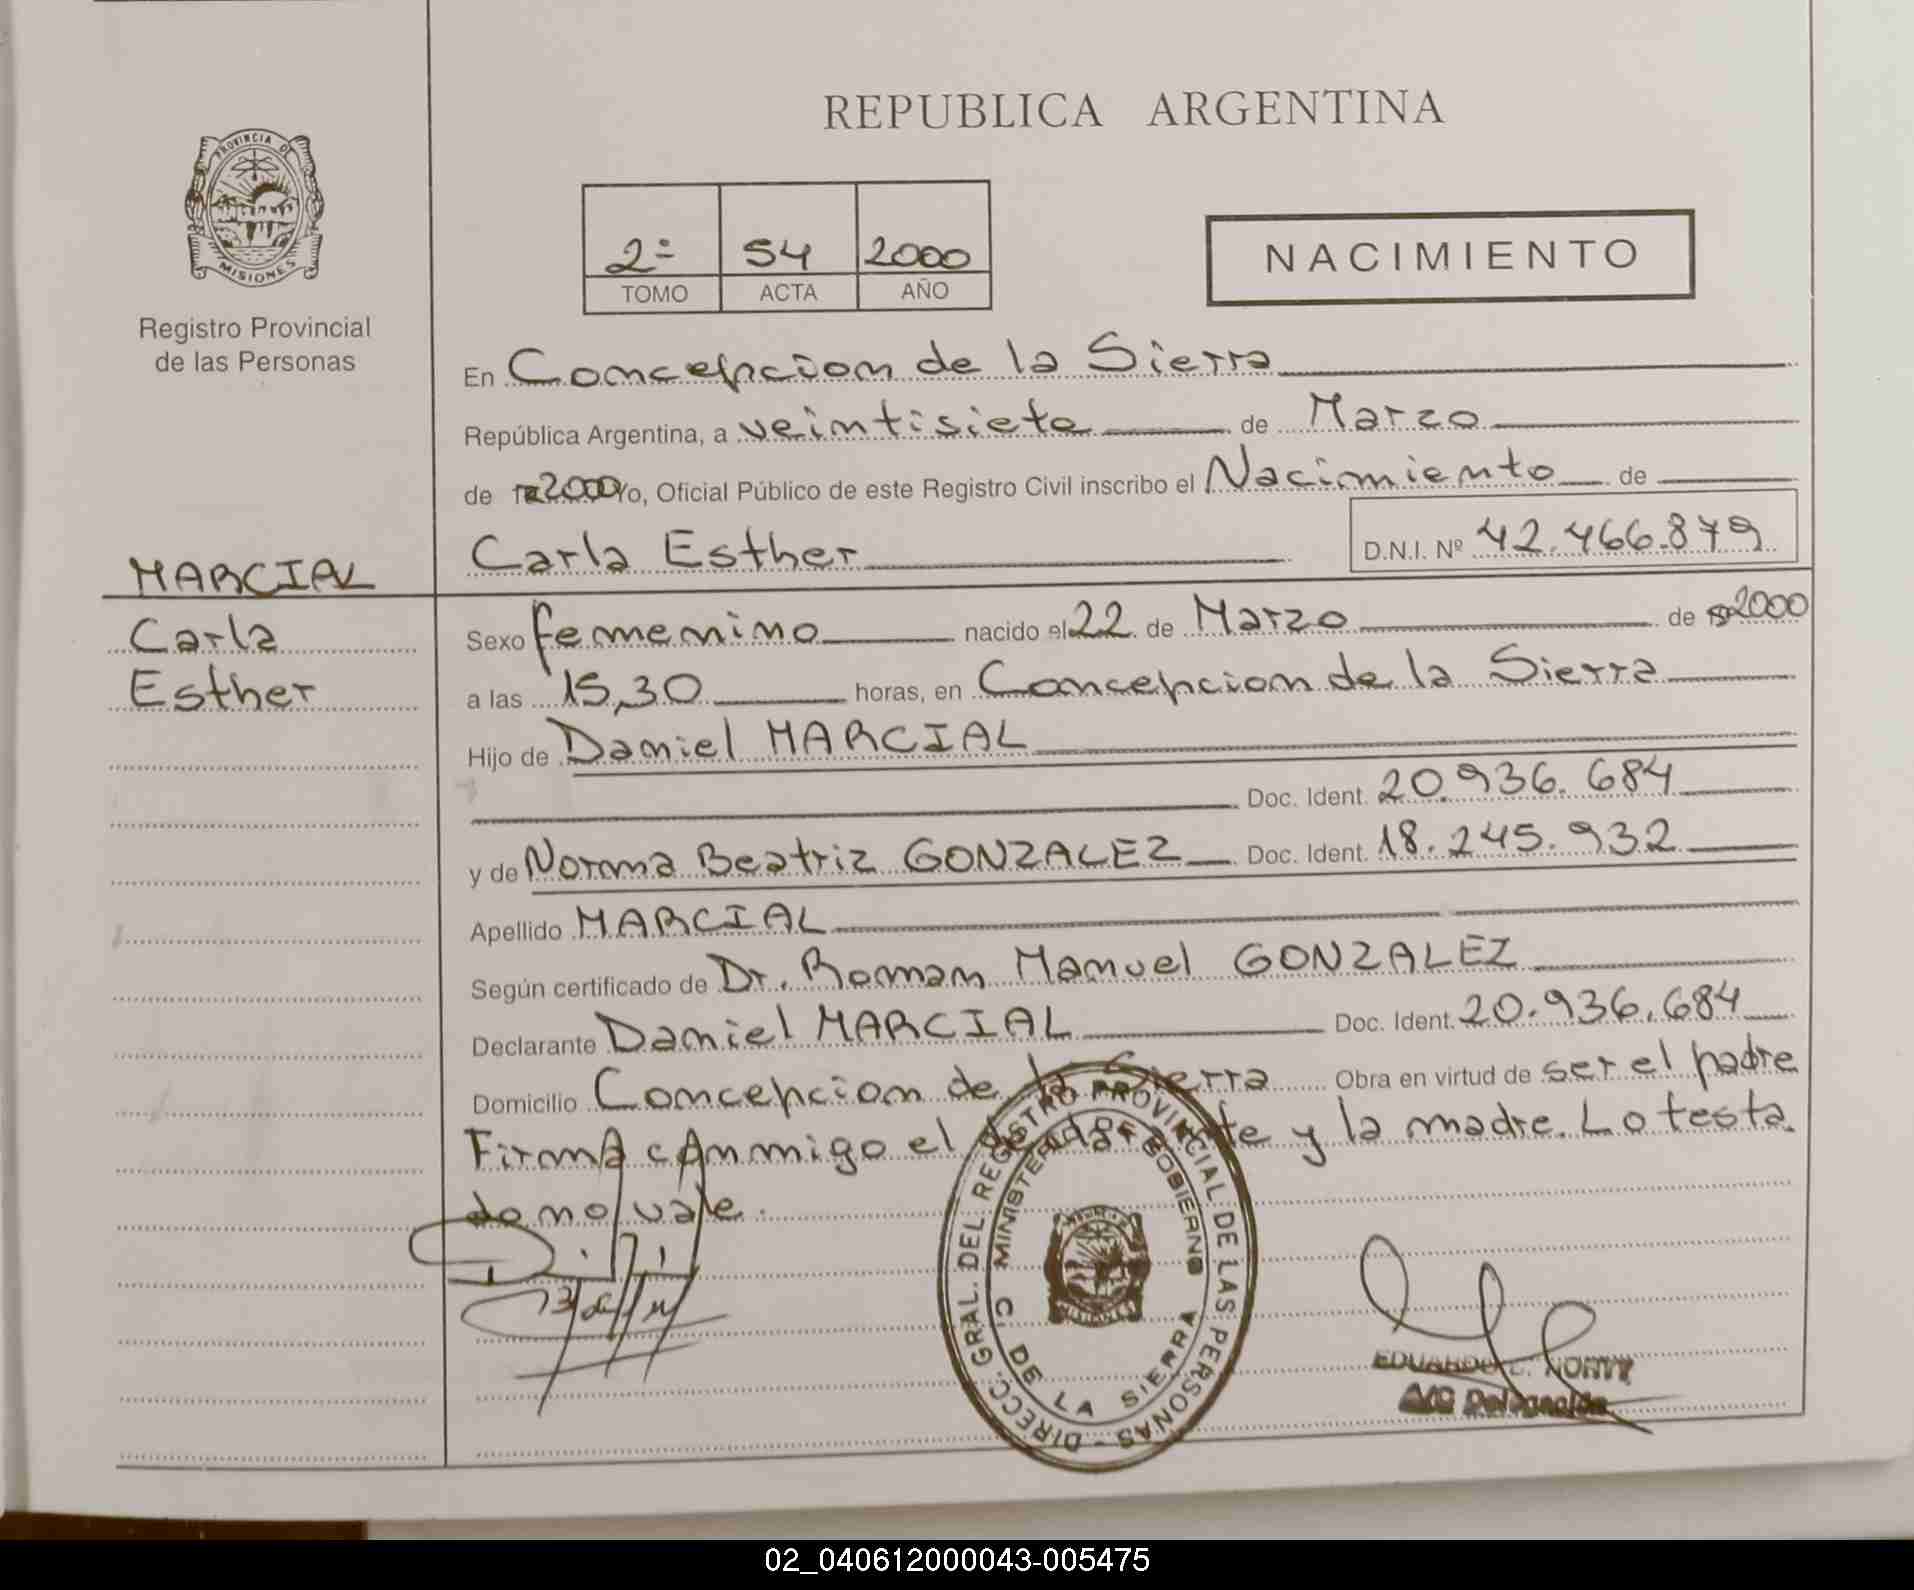 REPUBLICA ARGENTINA
PROVINCIA DE
MISIONES
Registro Provincial
de las Personas
2= 54 2000
TOMO ACTA AÑO
NACIMIENTO
En Concepcion de la Sierra
República Argentina, a veintisiete de Marzo
de 2000 Yo, Oficial Público de este Registro Civil inscribo el Nacimiento de
Carla Esther D.N.I. Nº 42.466.879
MARCIAL
Carla
Esther
Sexo femenino nacido el 22 de Marzo de 2000
a las 15,30 horas, en Concepcion de la Sierra
Hijo de Daniel MARCIAL
Doc. Ident. 20.936.684
y de Norma Beatriz GONZALEZ Doc. Ident. 18.245.932
Apellido MARCIAL
Según certificado de Dr. Roman Manuel GONZALEZ
Declarante Daniel MARCIAL Doc. Ident. 20.936.684
Domicilio Concepcion de la Sierra Obra en virtud de ser el padre
Firma conmigo el y la madre. Lo testa
do no vale.
DIRECC. GRAL. DEL REGISTRO PROVINCIAL DE LAS PERSONAS -
MINISTERIO DE GOBIERNO
C. DE LA SIERRA
MISIONES
EDUARDO
A/C Delegación
02_040612000043-005475